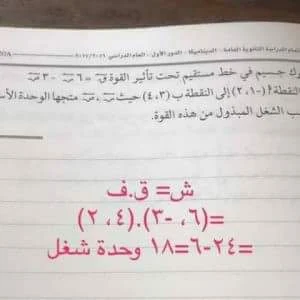 الدراسية الثانوية العامة - الديناميكا - الدور الأول - العام الدراسي ٢٠٢١/٢٠٢٢
جسم في خط مستقيم تحت تأثير القوة ق = ٦ س - ٣ ص
النقطة أ (-١، ٢) إلى النقطة ب (٣، ٤) حيث س، ص متجها الوحدة
الشغل المبذول من هذه القوة.
ش= ق.ف
=(٦، -٣).(٤، ٢)
=٢٤-٦=١٨ وحدة شغل